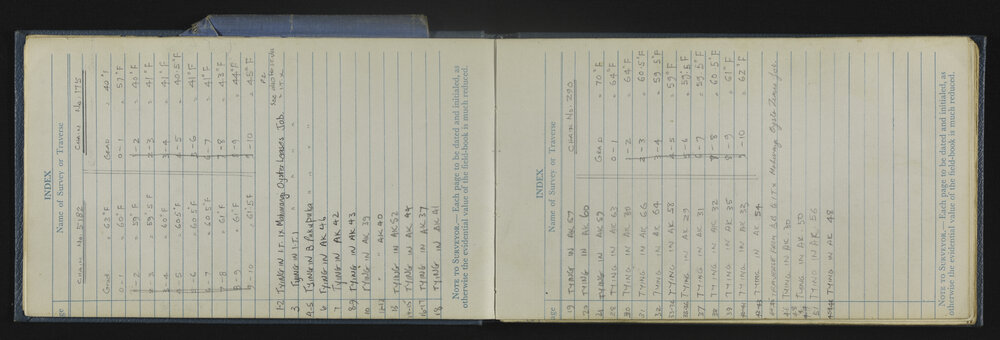 INDEX
Name of Survey or Traverse
Chain No 5782
Chain No 175
Grad = 63°F
Grad = 40°F
0-1 = 60°F
0-1 = 57°F
1-2 = 59°F
1-2 = 40°F
2-3 = 59.5°F
2-3 = 41°F
3-4 = 60°F
3-4 = 41°F
4-5 = 60.5°F
4-5 = 40.5°F
5-6 = 60.5°F
5-6 = 41°F
6-7 = 60.5°F
6-7 = 41°F
7-8 = 61°F
7-8 = 43°F
8-9 = 61°F
8-9 = 44°F
9-10 = 61.5°F
9-10 = 45°F
1-2 Tying in I.T. 1x Mahurangi Oyster Leases Job.
3 Tying in I.T. I " " "
4-5 Tying in B. Pukapuka " "
6 Tying in AK 46
7 Tying in AK 42
8-9 Tying in AK 43
10 Tying in AK 39
11-12 " " AK 40
13 Tying in AK 52
14-15 Tying in AK 49
16-17 Tying in AK 37
18 Tying in AK 41
NOTE TO SURVEYOR.—Each page to be dated and initialed, as
otherwise the evidential value of the field-book is much reduced.
INDEX
Name of Survey or Traverse
age
Chain No. 290
19 Tying in AK 57
Grad = 70°F
20 Tying in AK 60
0-1 = 64°F
24 Tying in AK 59
1-2 = 64°F
25 Tying in AK 63
2-3 = 60.5°F
30 Tying in AK
3-4 = 59.5°F
31 Tying in AK 66
4-5 = 59°F
32 Tying in AK 64
5-6 = 59.5°F
Tying in AK 58
6-7 = 59.5°F
Tying in AK 29
7-8 = 60.5°F
37 Tying in AK 31
8-9 = 61°F
38 Tying in AK 32
9-10 = 62°F
39 Tying in AK 35
Tying in AK 32
Tying in AK 54
Mahurangi Oyster Leases Job.
Tying in AK 30
Tying in AK 50
51 Tying in AK 56
Tying in AK 48
NOTE TO SURVEYOR.—Each page to be dated and initialed, as
otherwise the evidential value of the field-book is much reduced.